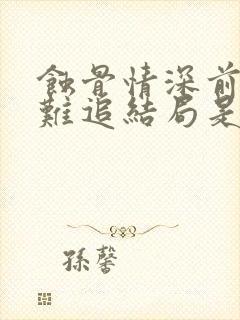 蝕骨情深前
難追結局是
孫馨